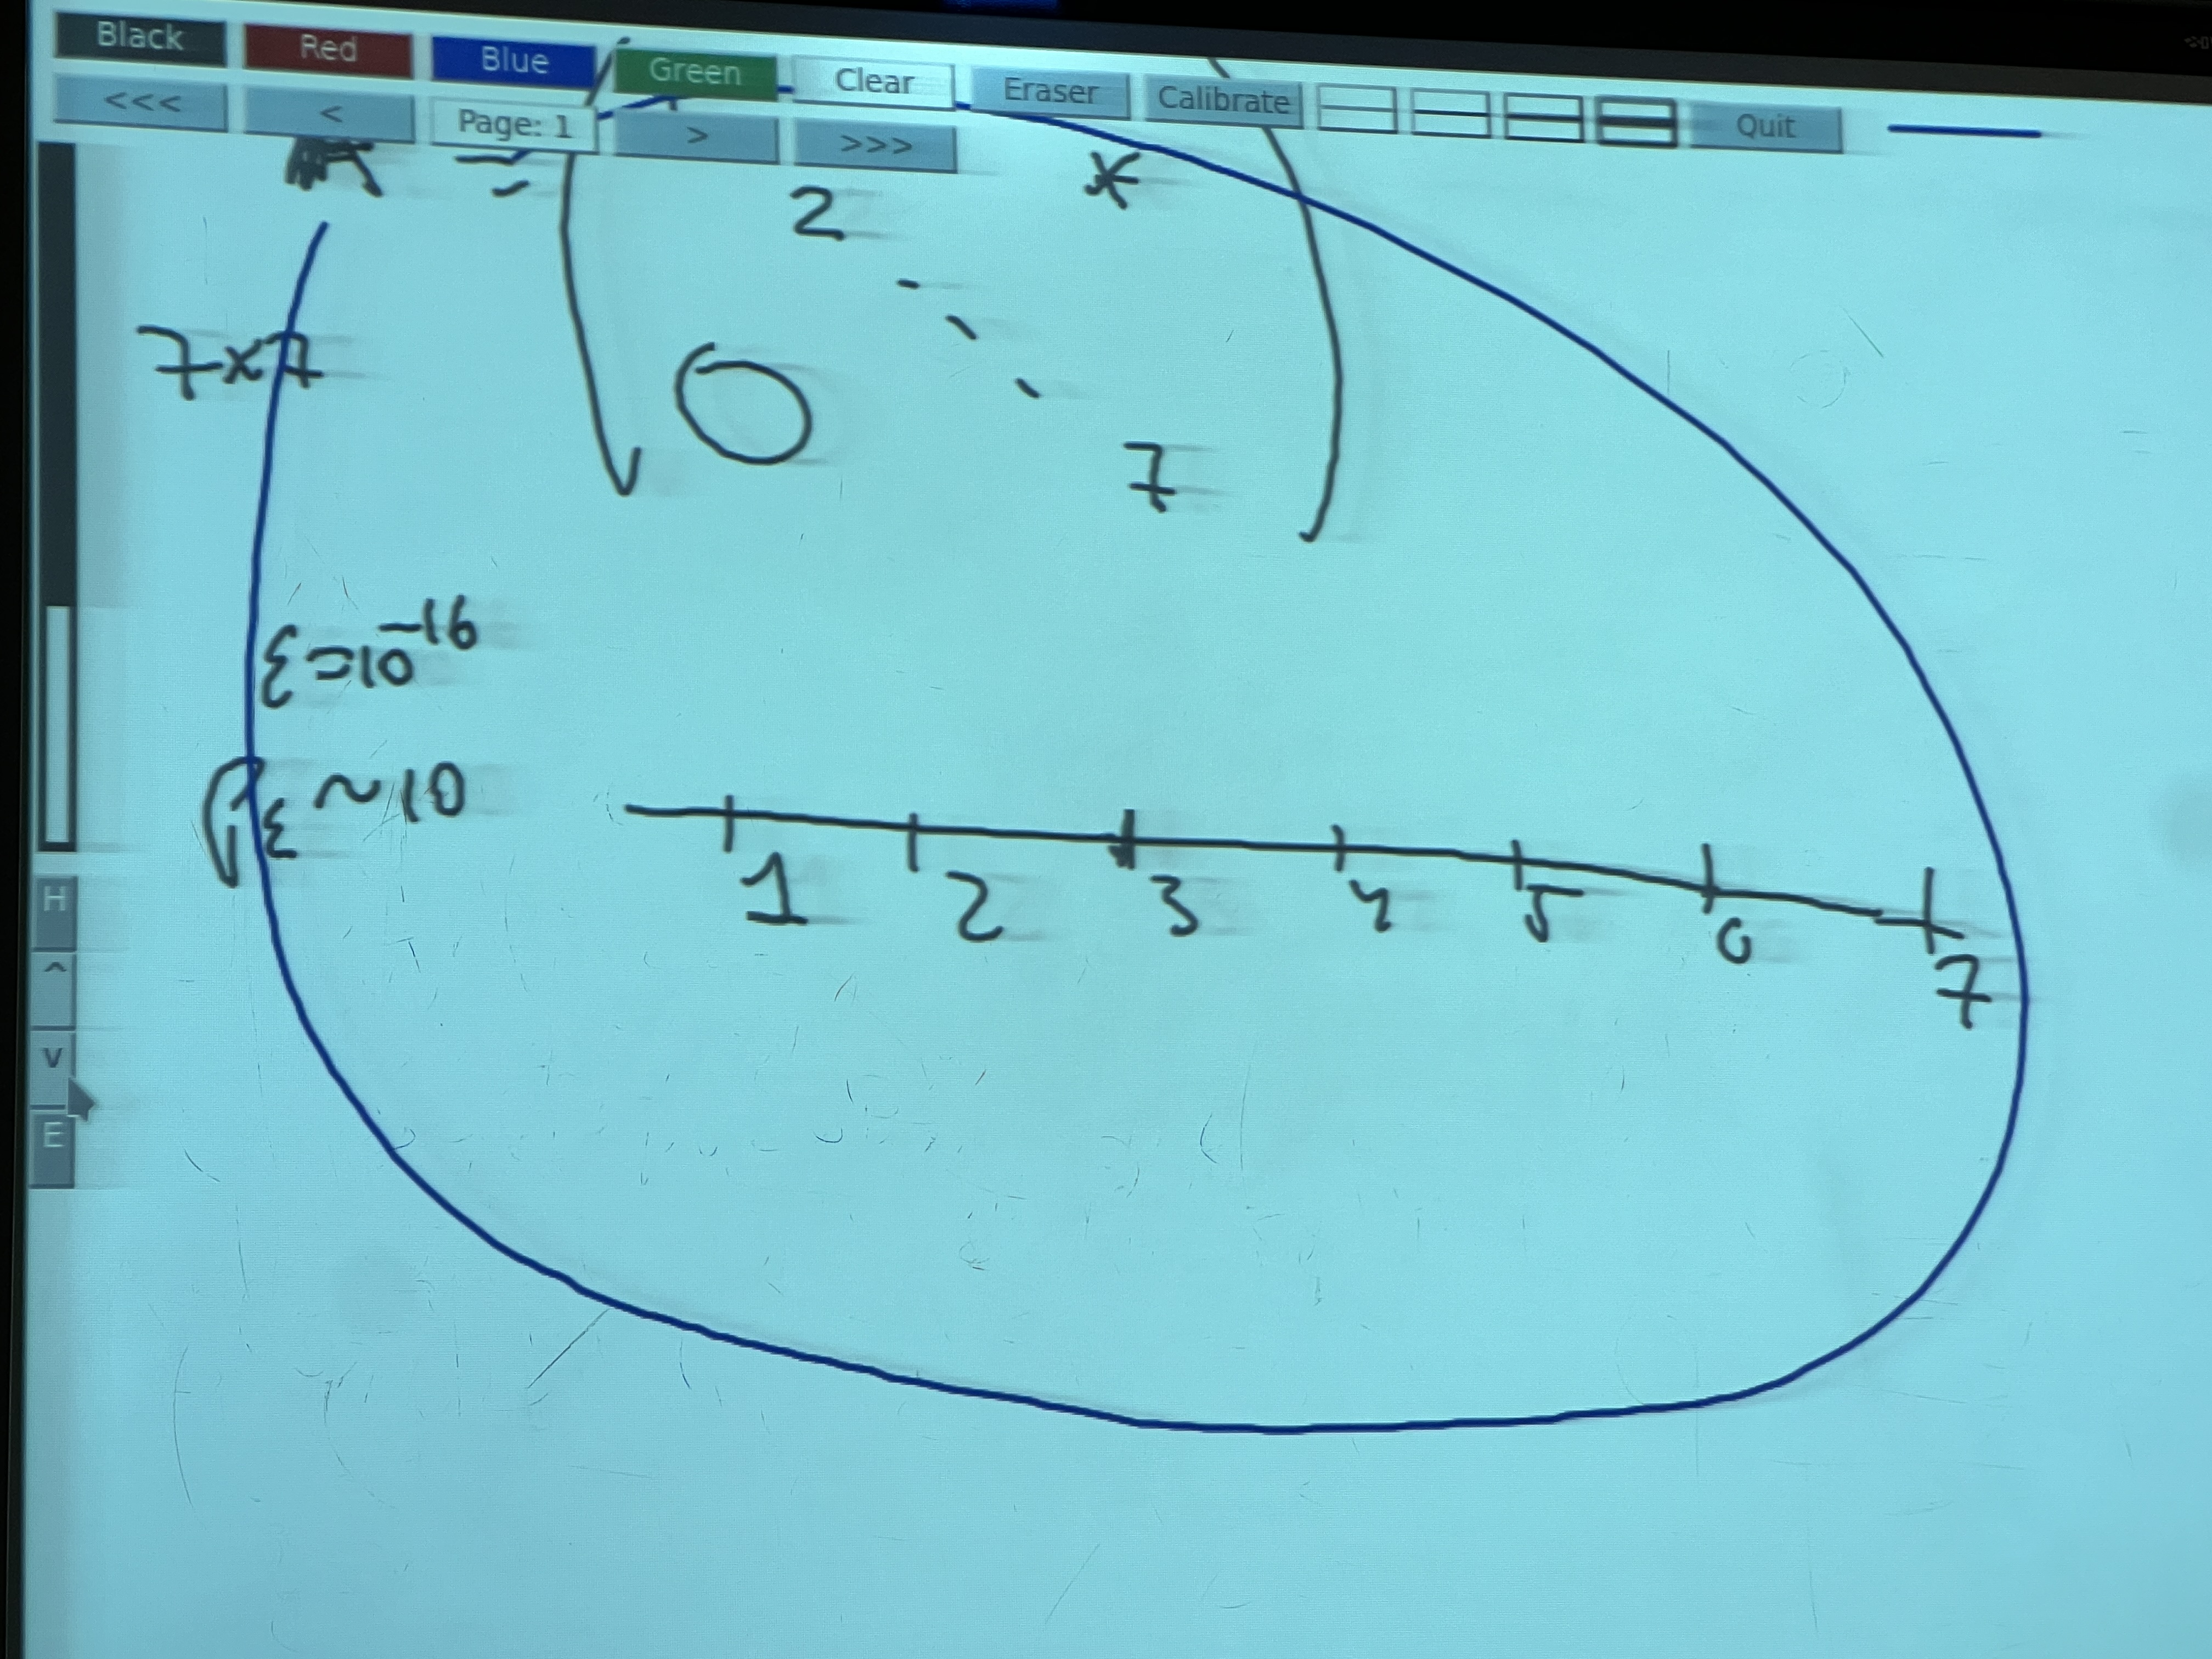 Black Red Blue Green Clear Eraser Calibrate Quit
<<< < Page: 1 > >>>
A =
2 *
7×7
O
7
ε=10^-16
ε ~10
1 2 3 4 5 6 7
H
^
v
E